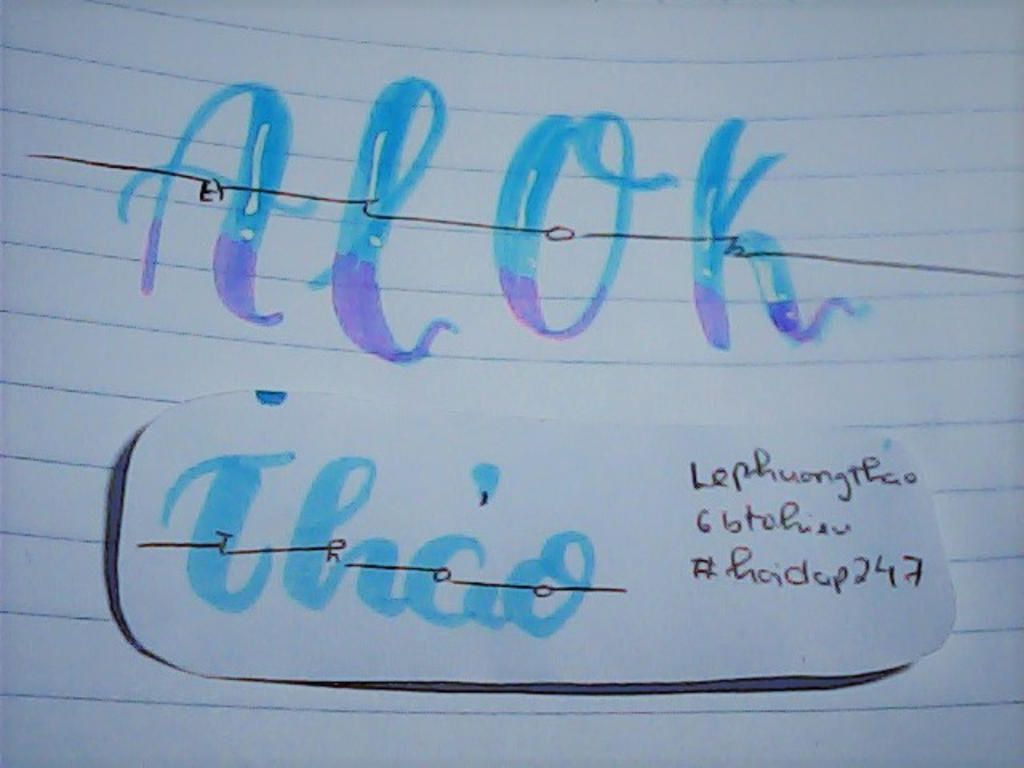 AlOk
Thảo
Lephuongthao
6btohieu
#hoidap247